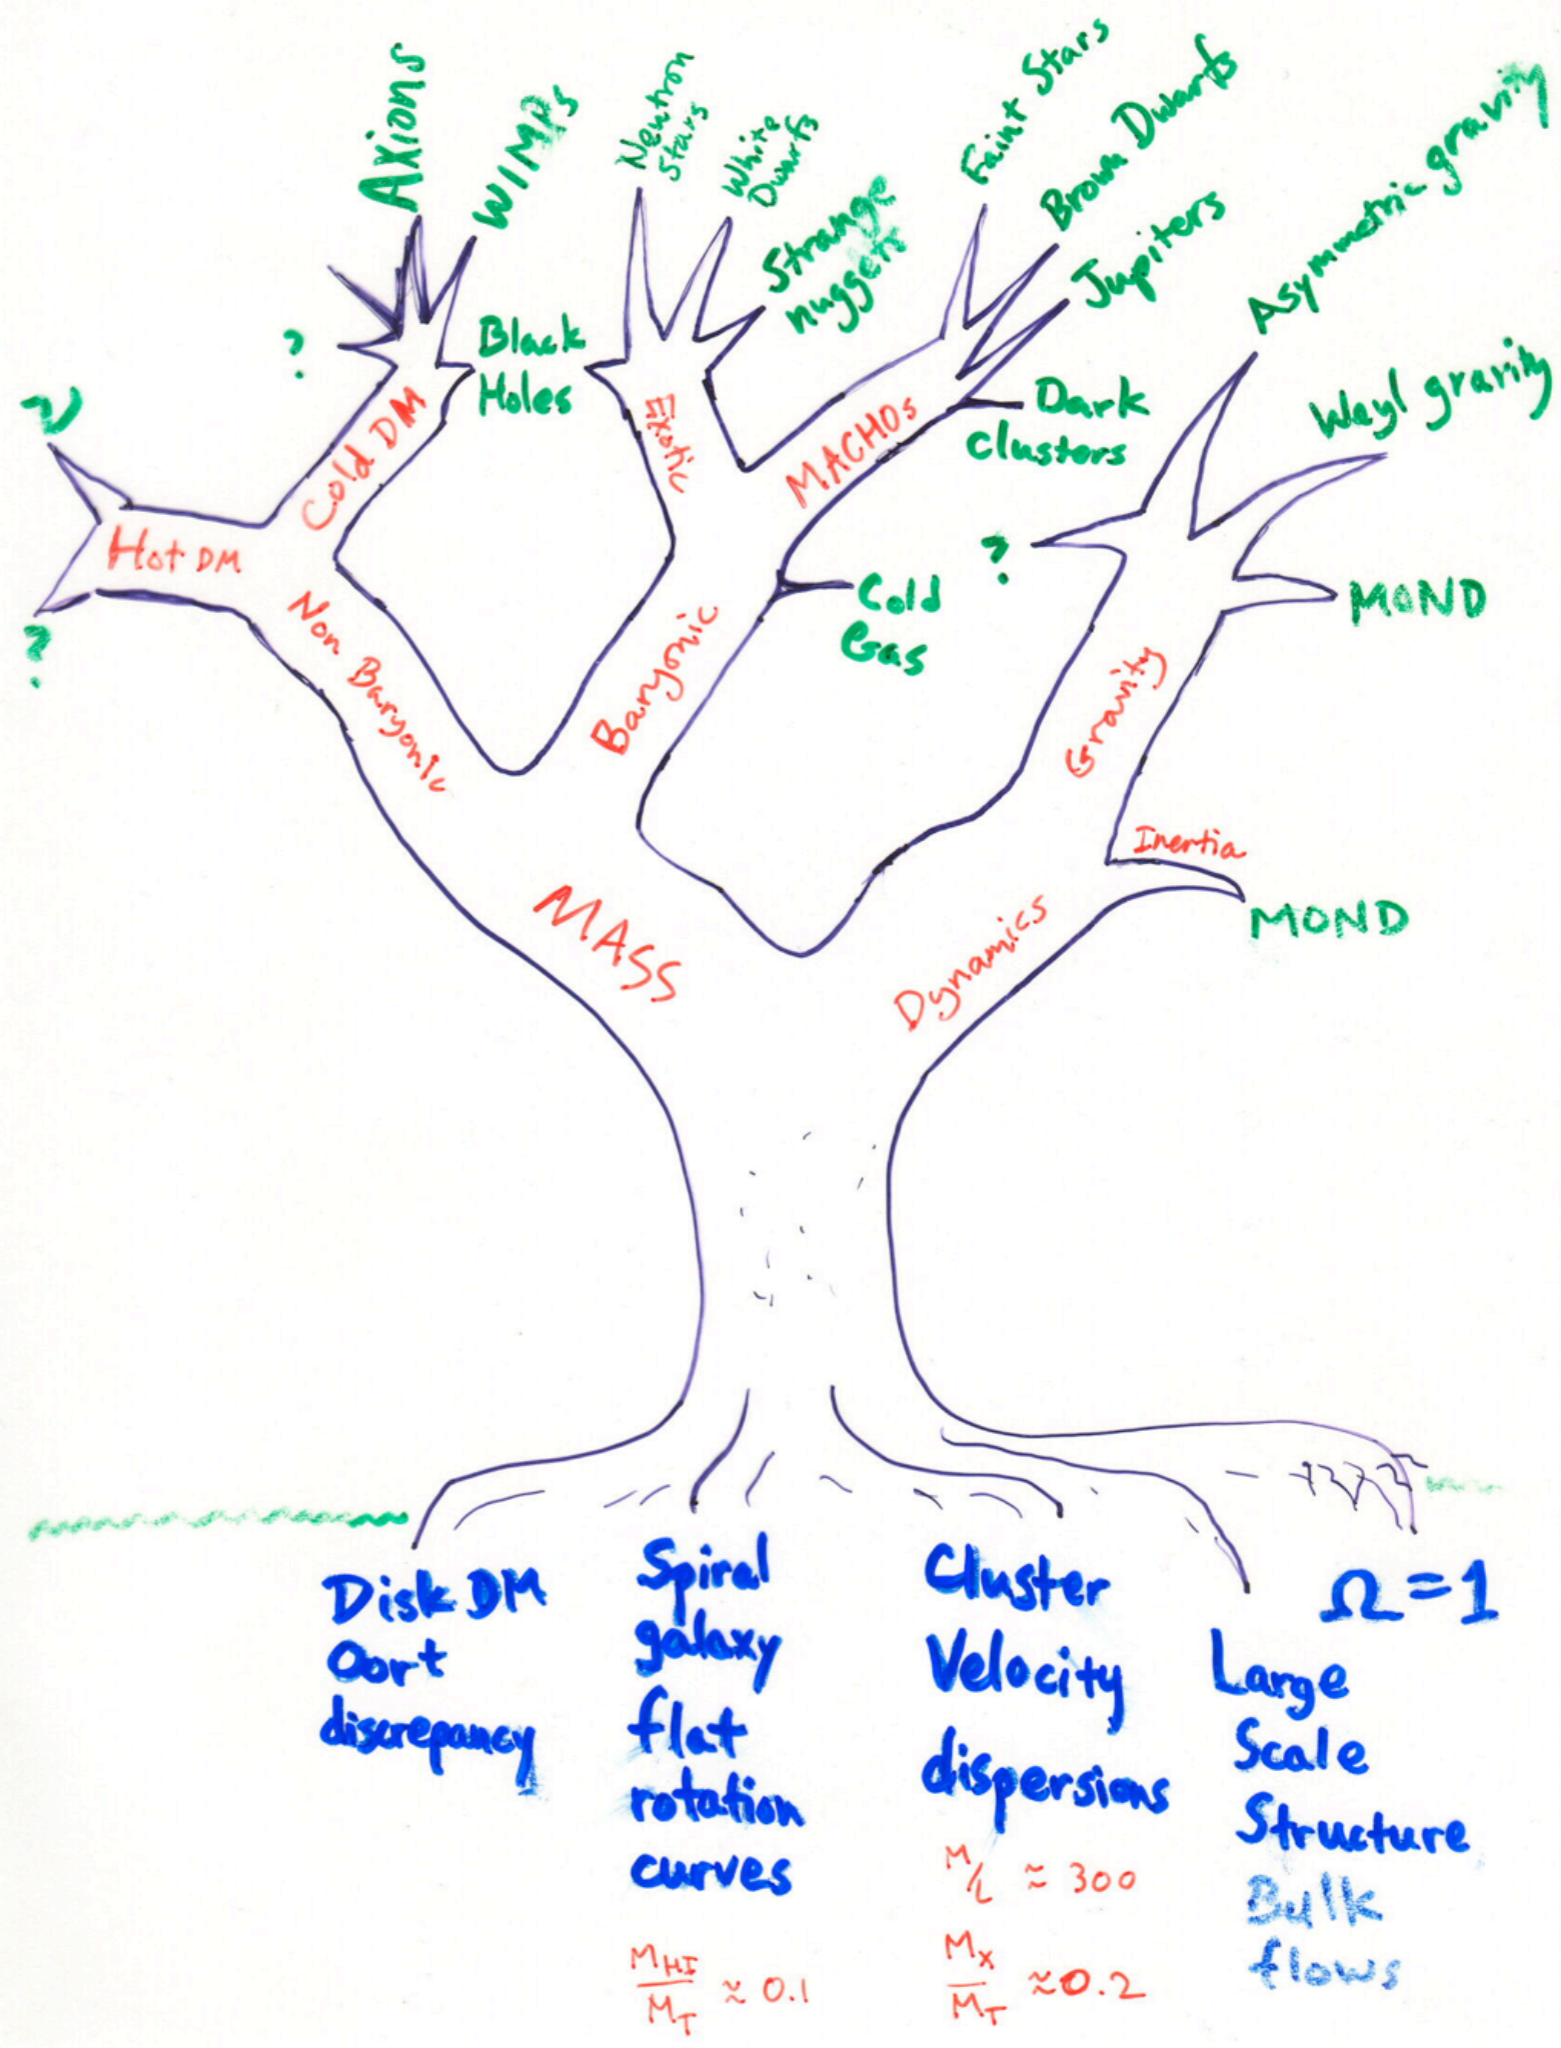 Axions
WIMPs
Neutron
Stars
White
Dwarfs
Strange
nuggets
Faint Stars
Brown Dwarfs
Jupiters
Asymmetric gravity
Weyl gravity
?
Black
Holes
ν
Cold DM
Exotic
MACHOs
Dark
clusters
Hot DM
?
?
Cold
Gas
MOND
Non Baryonic
Baryonic
Gravity
Inertia
MOND
MASS
Dynamics
Disk DM
Oort
discrepancy
Spiral
galaxy
flat
rotation
curves
M_HI / M_T ≈ 0.1
Cluster
Velocity
dispersions
M/L ≈ 300
M_X / M_T ≈ 0.2
Ω = 1
Large
Scale
Structure
Bulk
flows